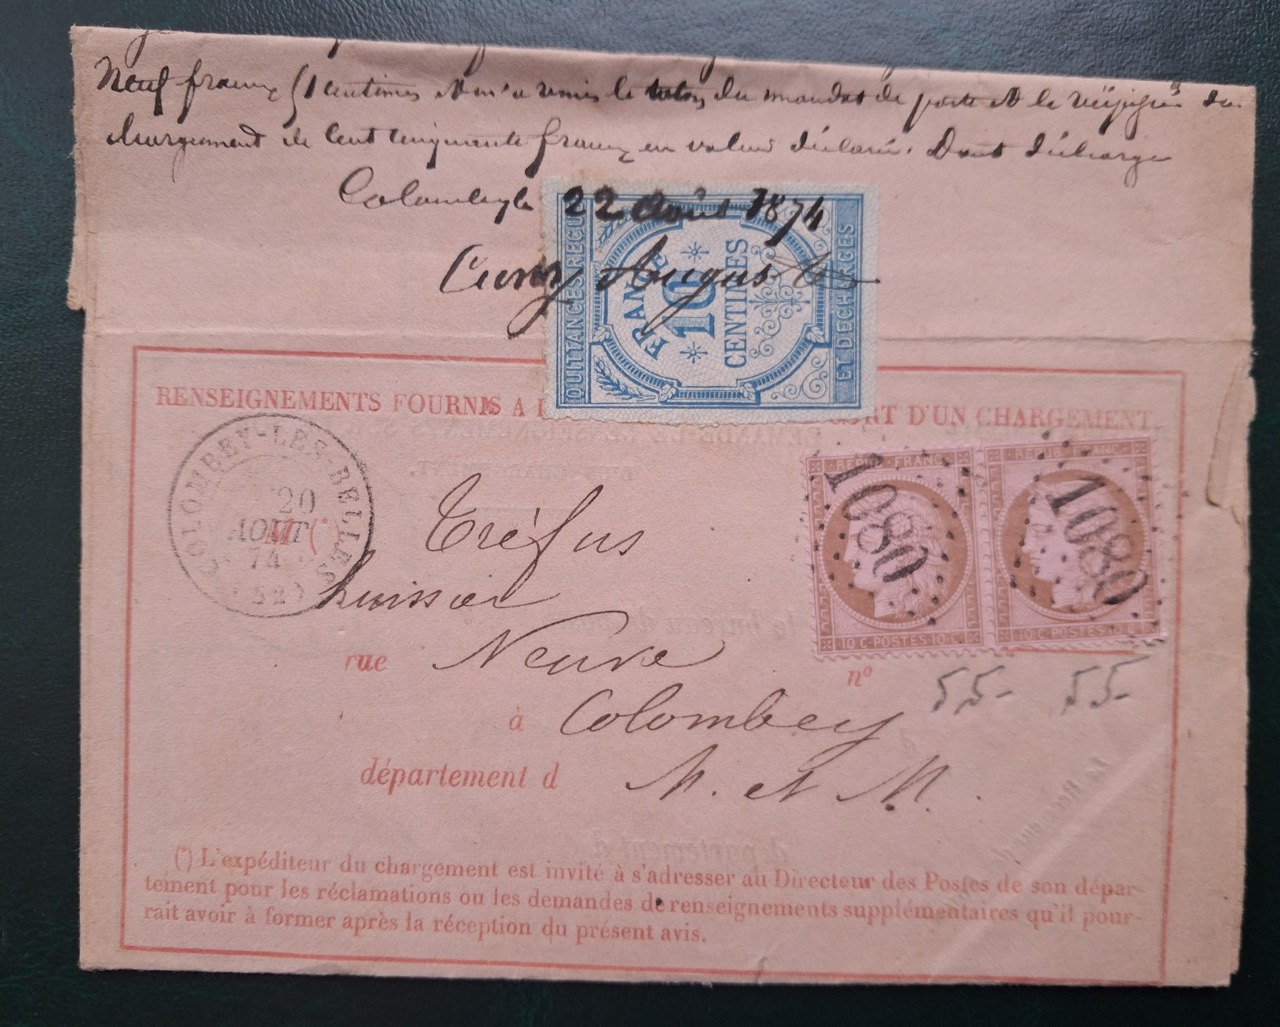 Neuf francs 51 centimes et m'a remis le talon du mandat de poste et le récépissé du
chargement de cent cinquante francs en valeur déclarée. Dont décharge
Colombey le 22 Août 1874
Cuny Auguste
QUITTANCES RECU
FRANCE
10
CENTIMES
ET DECHARGES
RENSEIGNEMENTS FOURNIS A L ORT D'UN CHARGEMENT.
COLOMBEY-LES-BELLES
20
AOUT
74
(52)
M (*)
REPUB. FRANC.
10 C POSTES 10 C
1080
REPUB. FRANC.
10 C POSTES 10 C
1080
Tréfus
huissier
rue Neuve n°
55- 55-
à Colombey
département d M. et M.
(*) L'expéditeur du chargement est invité à s'adresser au Directeur des Postes de son dépar-
tement pour les réclamations ou les demandes de renseignements supplémentaires qu'il pour-
rait avoir à former après la réception du présent avis.